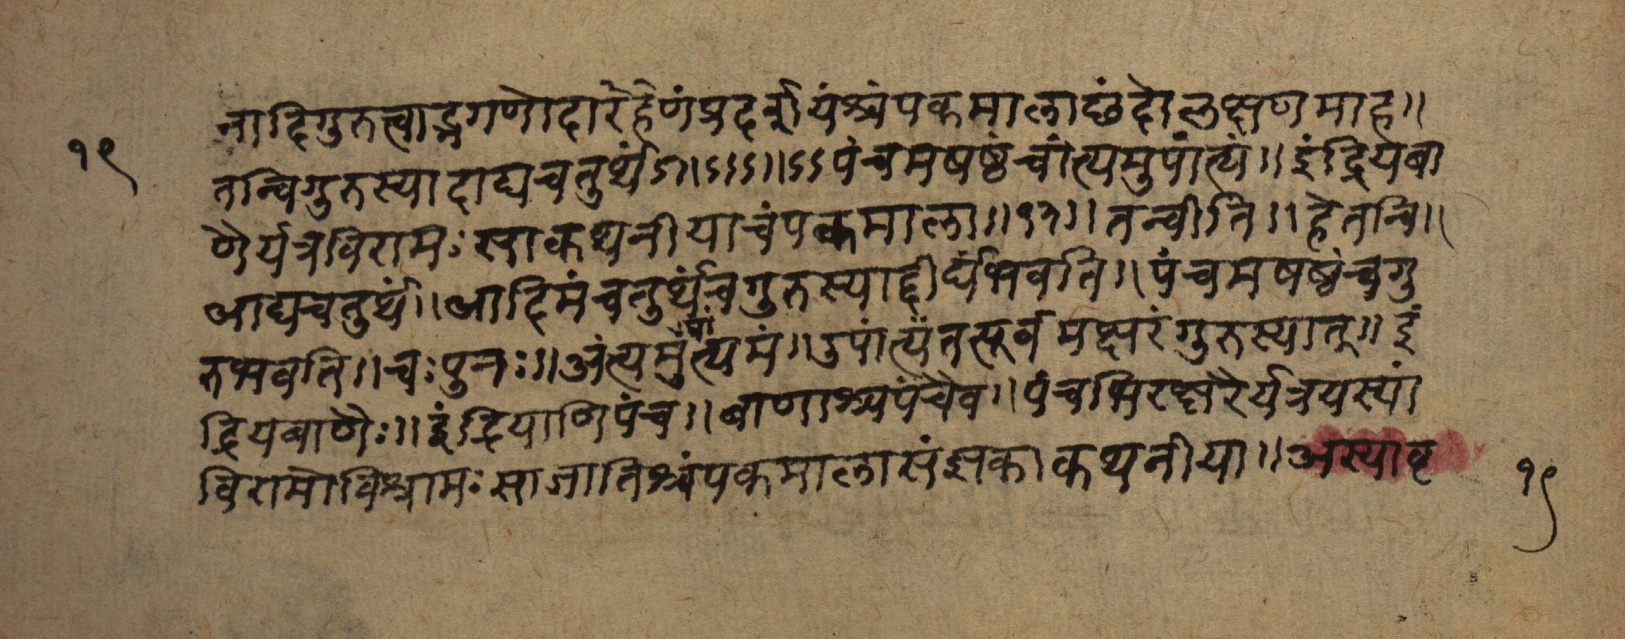 नादिगुरुत्वाद्भगणोदाहरणं प्रदर्श्ययंश्चंपकमालाछंदोलक्षणमाह॥
१९
तन्विगुरुस्यादाद्यचतुर्थं ऽ॥।ऽ।ऽऽ॥।ऽऽ पंचमषष्ठंचांत्यमुपांत्यं॥ इंद्रियबा
णैर्यत्रविरामः साकथनीयाचंपकमाला॥१३॥ तन्वीति॥ हेतन्वि॥
आद्यचतुर्थं॥ आदिमंचतुर्थंचगुरुस्याद्दीर्घंभवति॥ पंचमषष्ठंचगु
रुभवति॥ चः पुनः॥ अंत्यमुपांत्यमं॥ उपांत्यंतत्पूर्वमक्षरंगुरुस्यात्॥ इं
द्रियबाणैः॥ इंद्रियाणिपंच॥ बाणाश्चपंचैव॥ पंचभिरक्षरैर्यत्रयस्यां
विरामोविश्रामः साजातिश्चंपकमालासंज्ञकाकथनीया॥ अस्यावृ
१९